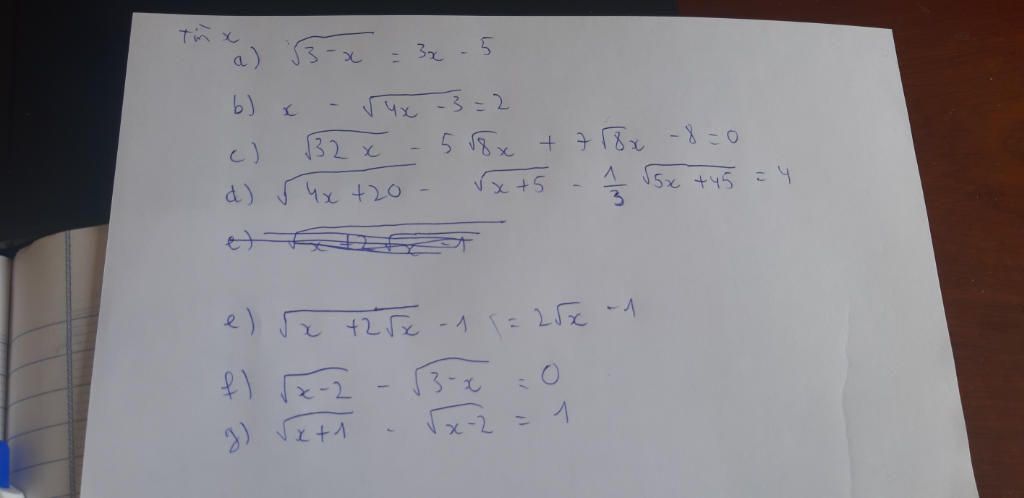 Tìm x
a) √(3-x) = 3x - 5
b) x - √(4x-3) = 2
c) √(32x) - 5√8x + 7√8x - 8 = 0
d) √(4x+20) - √(x+5) - 1/3 √(5x+45) = 4
e) √(x+2√x-1)
e) √(x+2√x) - 1 = 2√x - 1
f) √(x-2) - √(3-x) = 0
g) √(x+1) - √(x-2) = 1